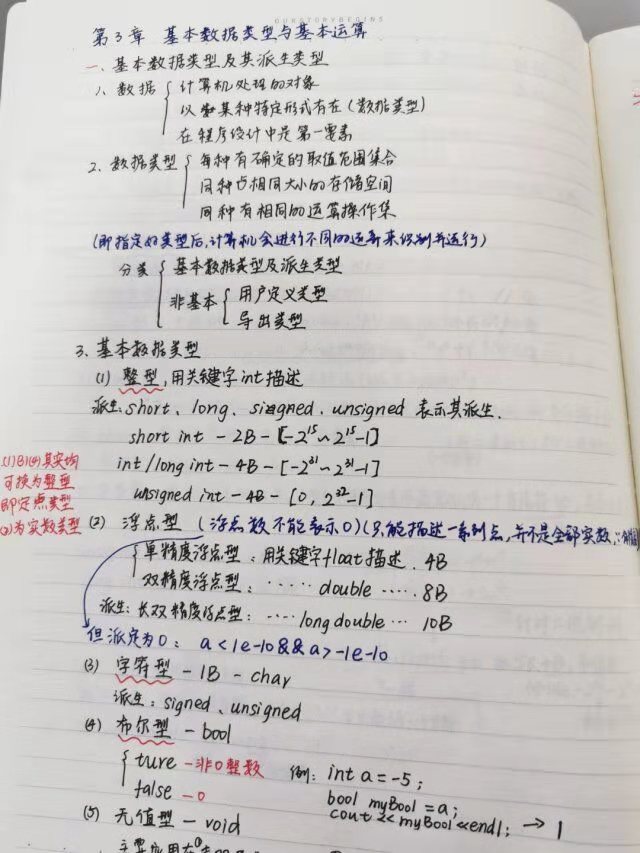 OURSTORYBEGINS
第3章 基本数据类型与基本运算
一、基本数据类型及其派生类型
1、数据 { 计算机处理的对象
以某种特定形式存在(数据类型)
在程序设计中是第一要素
2、数据类型 { 每种有确定的取值范围集合
同种占相同大小的存储空间
同种有相同的运算操作集
(即指定好类型后,计算机会进行不同的运算来识别并运行)
分类 { 基本数据类型及派生类型
非基本 { 用户定义类型
导出类型
3、基本数据类型
(1) 整型,用关键字int描述
派生:short、long、signed、unsigned 表示其派生.
short int - 2B - [-2^15 ~ 2^15-1]
int/long int - 4B - [-2^31 ~ 2^31-1]
unsigned int - 4B - [0, 2^32-1]
(1)(3)(4)其实均
可换为整型
即定点类型
(2)为实数类型
(2) 浮点型 (浮点数不能表示0)(只能描述一系列点,并不是全部实数,∴
{ 单精度浮点型:用关键字float描述. 4B
双精度浮点型:······ double ····· 8B
派生:长双精度浮点型:···· long double ··· 10B
但派定为0: a<1e-10&&a>-1e-10
(3) 字符型 - 1B - char
派生:signed、unsigned
(4) 布尔型 - bool
{ ture - 非0整数
false - 0
例: int a=-5;
bool myBool=a;
cout<<myBool<<endl; → 1
(5) 无值型 - void
主要应用在